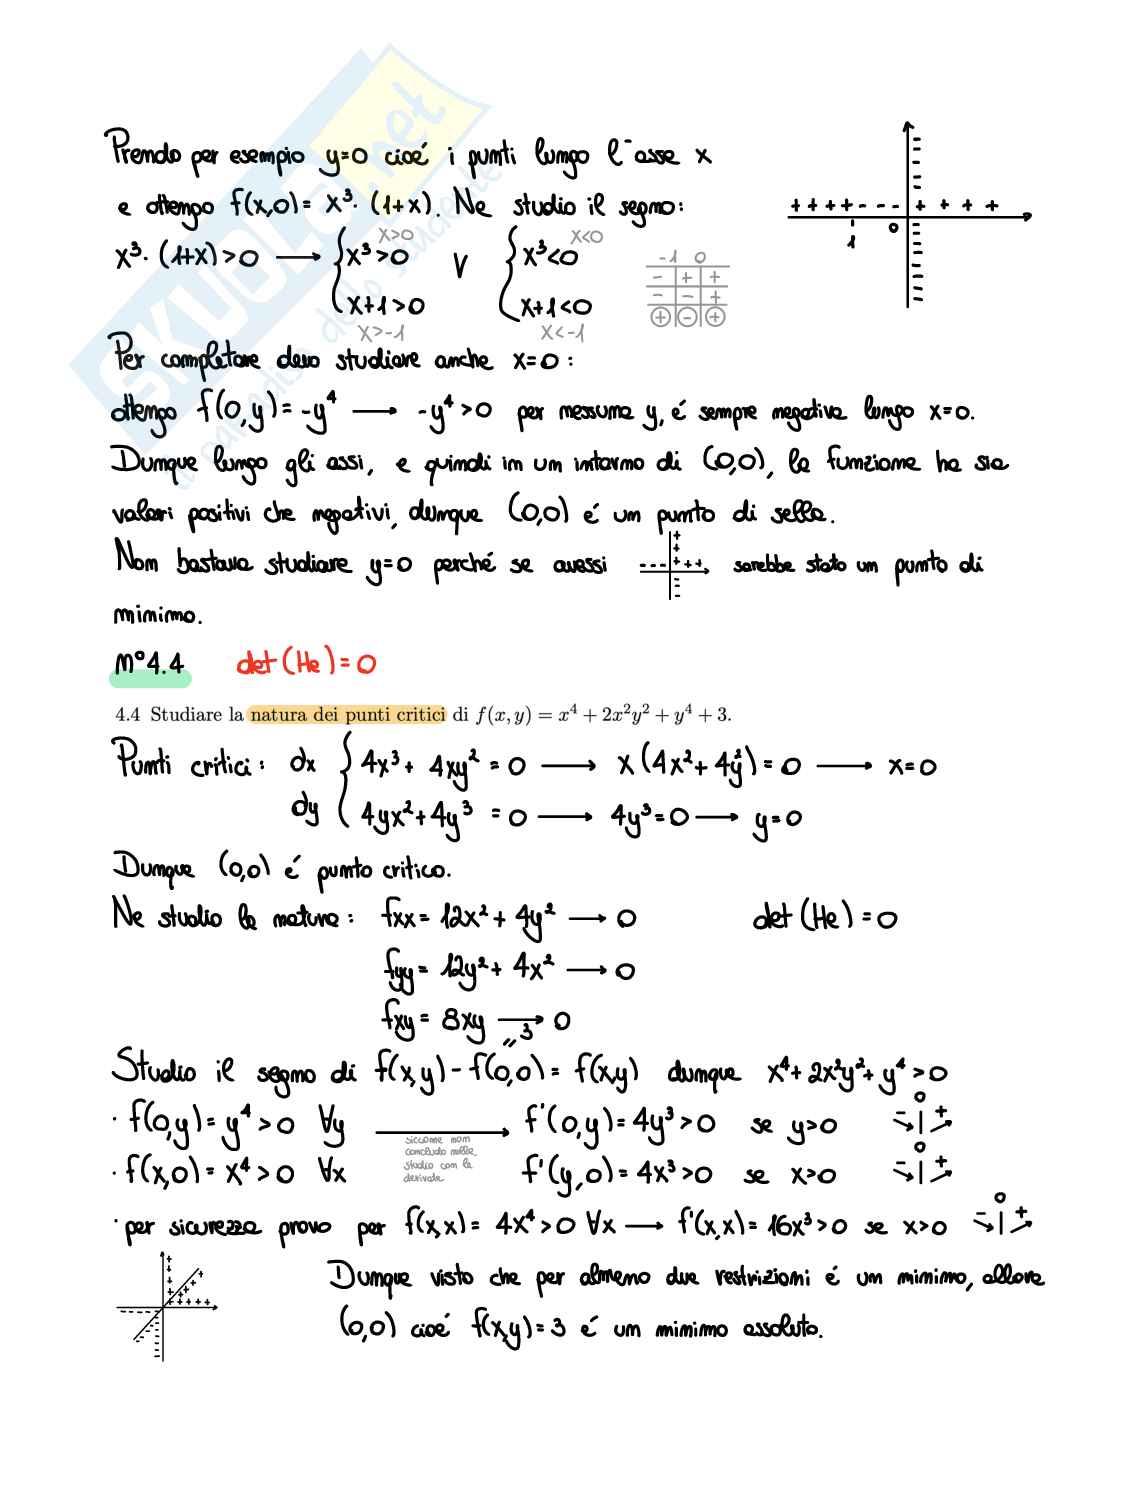 Prendo per esempio y=0 cioé i punti lungo l'asse x
e ottengo f(x,0) = x³·(1+x). Ne studio il segno:
+ + + + - - - + + + +
-1 0
x³·(1+x) > 0 → { x³>0 x>0 x+1>0 x>-1 ∨ { x³<0 x<0 x+1<0 x<-1
-1 0
- + +
- - +
+ - +
Per completare devo studiare anche x=0:
ottengo f(0,y) = -y⁴ → -y⁴>0 per nessuna y, é sempre negativa lungo x=0.
Dunque lungo gli assi, e quindi in un intorno di (0,0), la funzione ha sia
valori positivi che negativi, dunque (0,0) é un punto di sella.
Non bastava studiare y=0 perché se avessi - - - + + + sarebbe stato un punto di
minimo.
n°4.4 det(He)=0
4.4 Studiare la natura dei punti critici di f(x, y) = x⁴ + 2x²y² + y⁴ + 3.
Punti critici: dx { 4x³+ 4xy² = 0 → x(4x²+4y²)=0 → x=0
dy { 4yx²+4y³ = 0 → 4y³=0 → y=0
Dunque (0,0) é punto critico.
Ne studio la natura: fxx = 12x²+ 4y² → 0 det(He)=0
fyy = 12y²+ 4x² → 0
fxy = 8xy → 0
Studio il segno di f(x,y) - f(0,0) = f(x,y) dunque x⁴+ 2x²y²+ y⁴ >0
" 3
· f(0,y) = y⁴>0 ∀y → f'(0,y) = 4y³>0 se y>0 - 0 +
siccome non concludo nulla studio con la derivata
· f(x,0) = x⁴>0 ∀x f'(y,0) = 4x³>0 se x>0 - 0 +
· per sicurezza provo per f(x,x) = 4x⁴>0 ∀x → f'(x,x) = 16x³>0 se x>0 - 0 +
Dunque visto che per almeno due restrizioni é un minimo, allora
(0,0) cioé f(x,y)=3 é un minimo assoluto.
SKUOLA.net
il paradiso dello studente